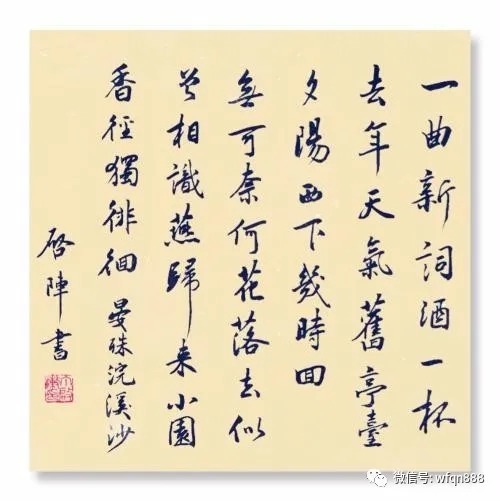 一曲新詞酒一杯
去年天氣舊亭臺
夕陽西下幾時回
無可奈何花落去似
曾相識燕歸来小園
香徑獨徘徊 晏殊浣溪沙
啓陣書
微信号: wfqn888